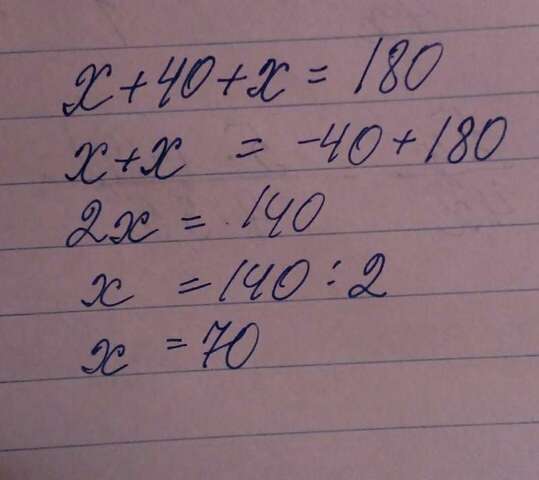 x+40+x = 180
x+x = -40+180
2x = 140
x = 140 : 2
x = 70